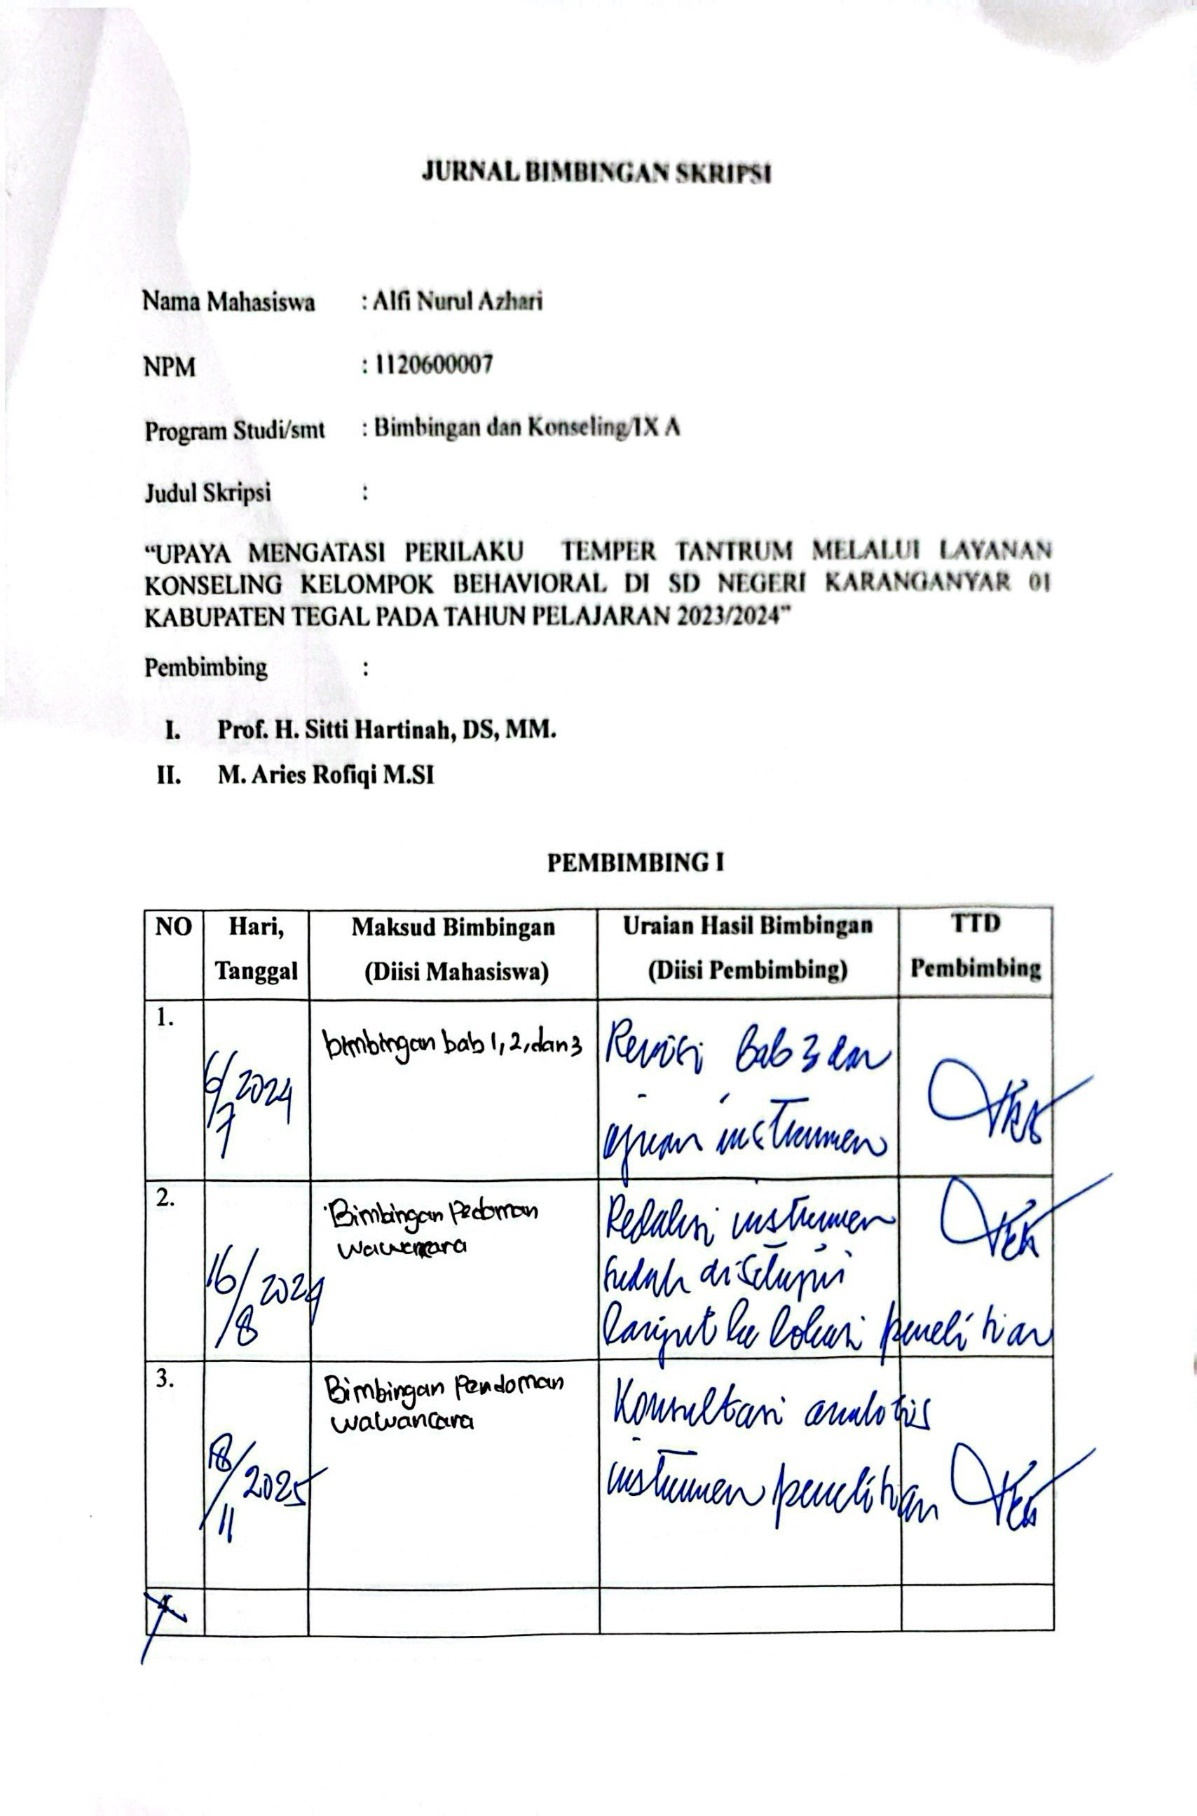 JURNAL BIMBINGAN SKRIPSI
Nama Mahasiswa : Alfi Nurul Azhari
NPM : 1120600007
Program Studi/smt : Bimbingan dan Konseling/IX A
Judul Skripsi :
“UPAYA MENGATASI PERILAKU TEMPER TANTRUM MELALUI LAYANAN
KONSELING KELOMPOK BEHAVIORAL DI SD NEGERI KARANGANYAR 01
KABUPATEN TEGAL PADA TAHUN PELAJARAN 2023/2024”
Pembimbing :
I. Prof. H. Sitti Hartinah, DS, MM.
II. M. Aries Rofiqi M.SI
PEMBIMBING I
NO Hari, Tanggal Maksud Bimbingan (Diisi Mahasiswa) Uraian Hasil Bimbingan (Diisi Pembimbing) TTD Pembimbing
1.
6/7 2024
bimbingan bab 1, 2, dan 3
Revisi Bab 3 dan
ajuan instrumen
2.
16/8 2024
Bimbingan Pedoman
wawancara
Redaksi instrumen
sudah disetujui
lanjut ke lokasi penelitian
3.
18/11 2025
Bimbingan Pendoman
wawancara
Konsultasi analisis
instrumen penelitian
4.